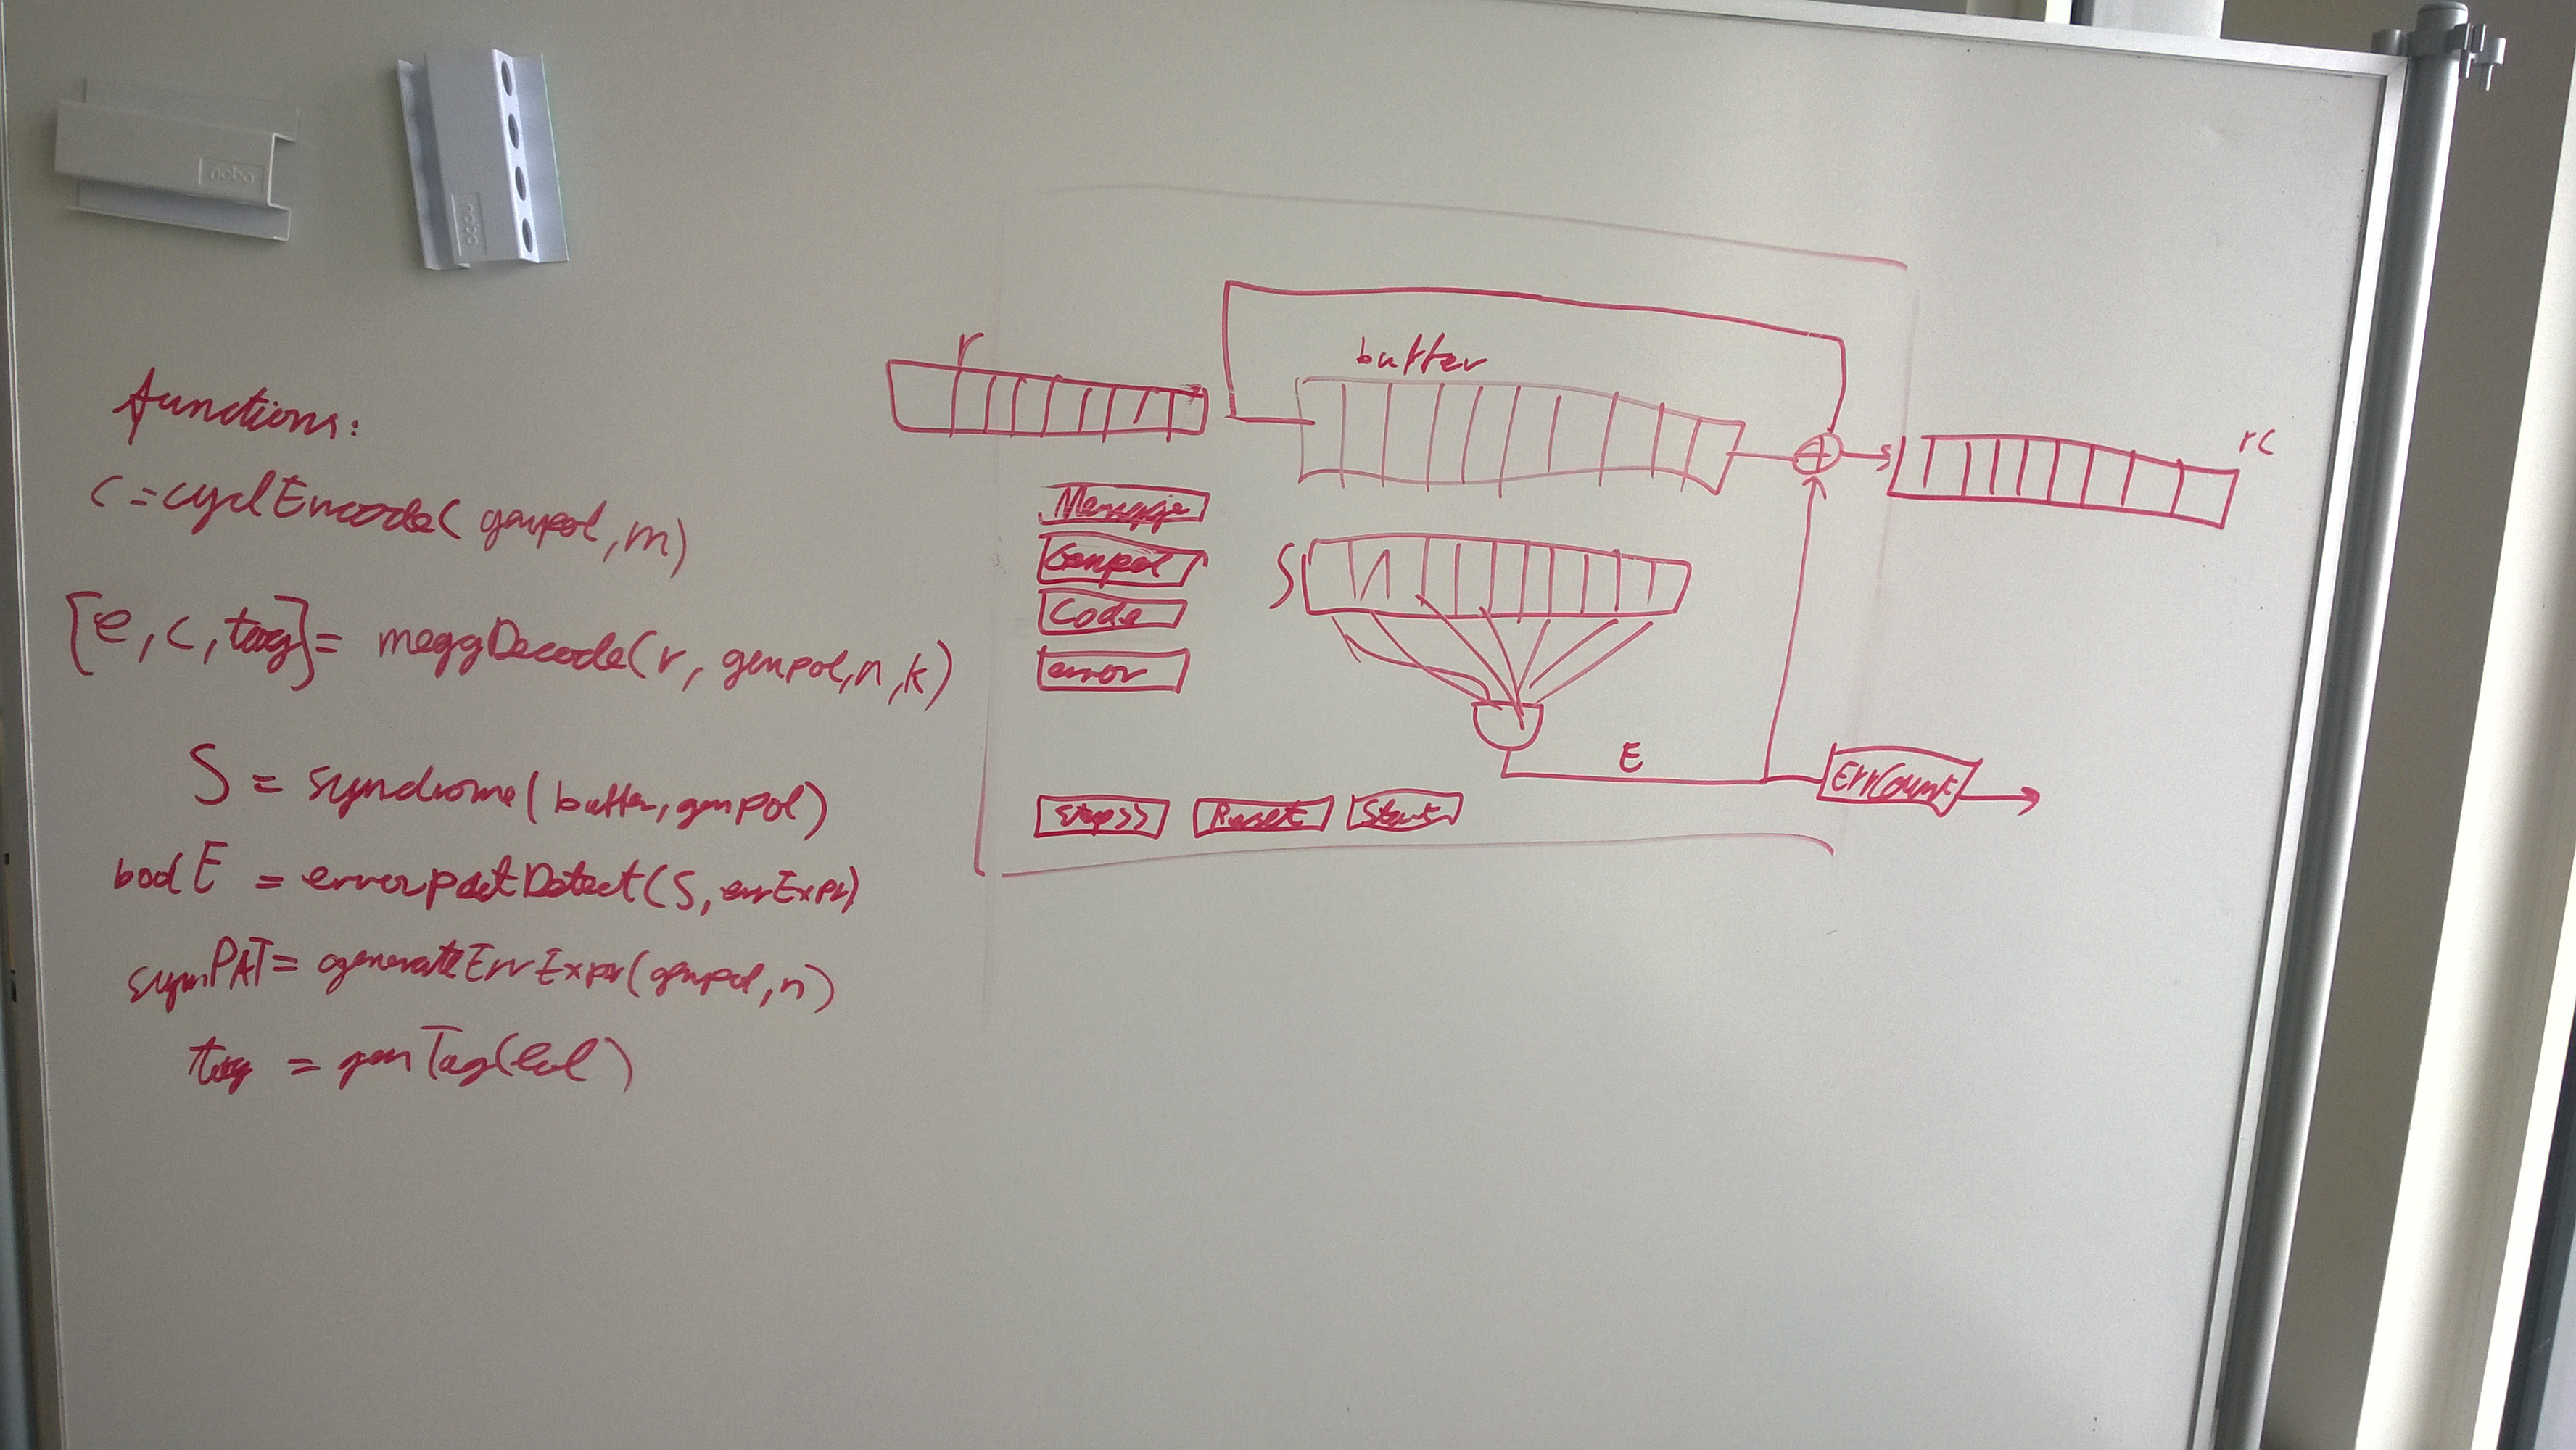 nobo
nobo
functions:
c = cyclEncode( genpol, m)
[e, c, tag] = meggDecode(r, genpol, n, k)
S = syndrome( buffer, genpol)
bool E = errorpatDetect(S, errExpr)
symPAT = generateErrExpr(genpol, n)
tag = genTag(lol)
r
buffer
rc
Message
Genpol
Code
error
S
E
ErrCount
Step>>
Reset
Start